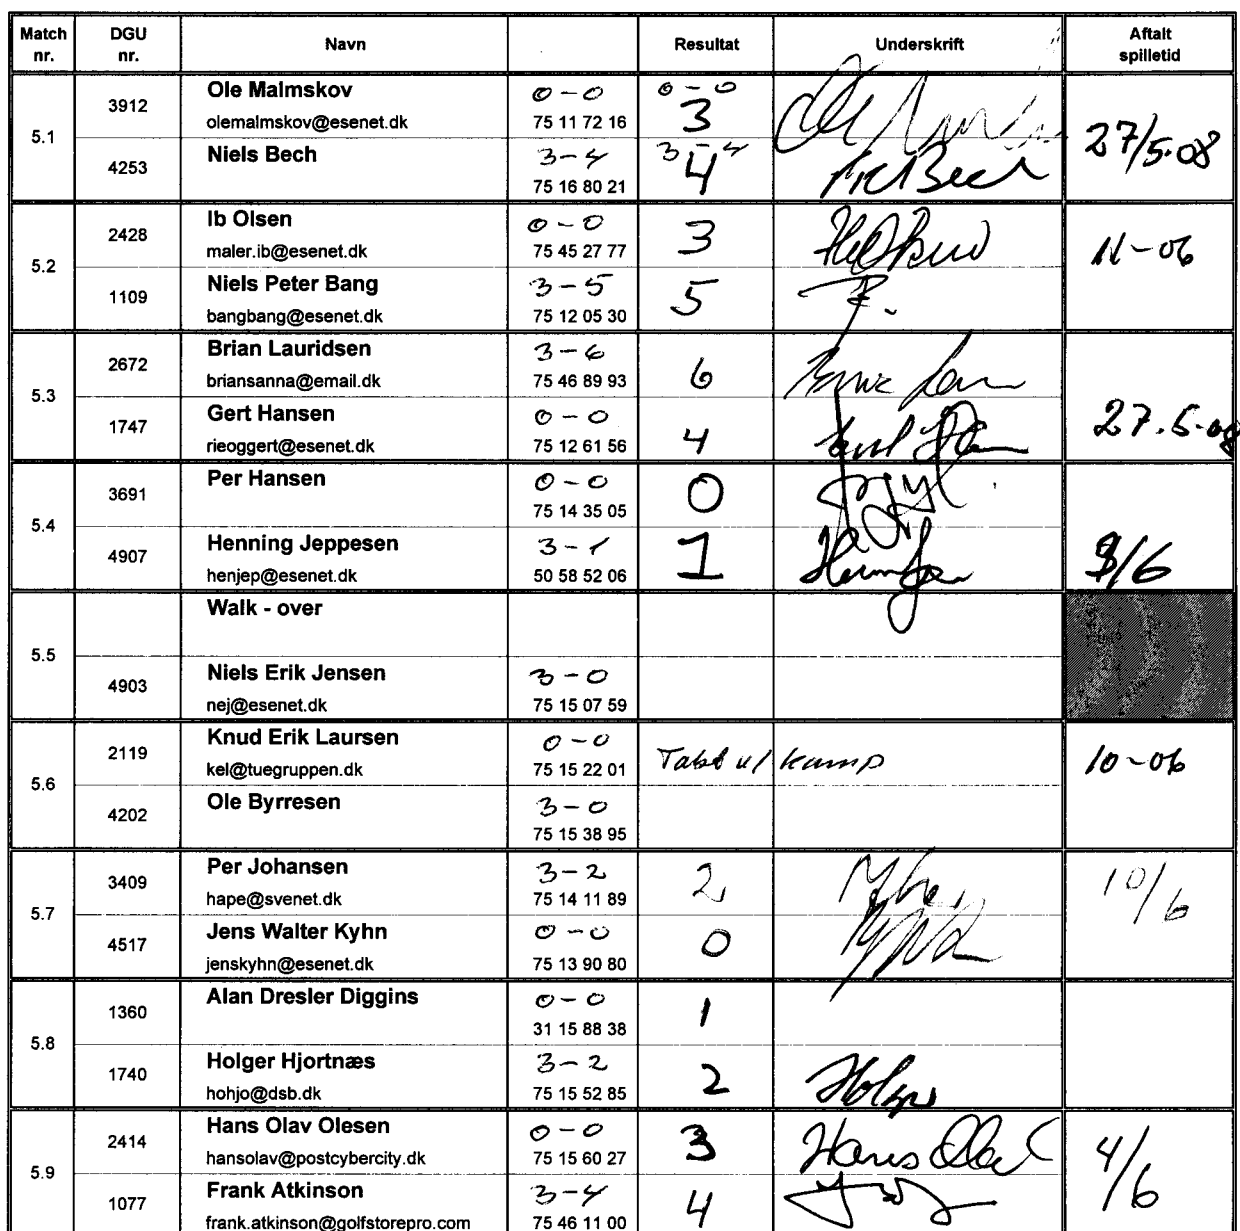 Match nr. DGU nr. Navn Resultat Underskrift Aftalt spilletid
5.1
3912 Ole Malmskov 0-0 0-0
olemalmskov@esenet.dk 75 11 72 16 3
27/5-08
4253 Niels Bech 3-4 3-4
75 16 80 21 4
5.2
2428 Ib Olsen 0-0 3
maler.ib@esenet.dk 75 45 27 77
11-06
1109 Niels Peter Bang 3-5 5
bangbang@esenet.dk 75 12 05 30
5.3
2672 Brian Lauridsen 3-6 6
briansanna@email.dk 75 46 89 93
1747 Gert Hansen 0-0 4
rieoggert@esenet.dk 75 12 61 56
27.5-08
5.4
3691 Per Hansen 0-0 0
75 14 35 05
4907 Henning Jeppesen 3-1 1
henjep@esenet.dk 50 58 52 06
/6
5.5
Walk - over
4903 Niels Erik Jensen 3-0
nej@esenet.dk 75 15 07 59
5.6
2119 Knud Erik Laursen 0-0
kel@tuegruppen.dk 75 15 22 01 Tabt u/ kamp 10-06
4202 Ole Byrresen 3-0
75 15 38 95
5.7
3409 Per Johansen 3-2 2
hape@svenet.dk 75 14 11 89
10/6
4517 Jens Walter Kyhn 0-0 0
jenskyhn@esenet.dk 75 13 90 80
5.8
1360 Alan Dresler Diggins 0-0 1
31 15 88 38
1740 Holger Hjortnæs 3-2 2
hohjo@dsb.dk 75 15 52 85 Holger
5.9
2414 Hans Olav Olesen 0-0 3 Hans Olav
hansolav@postcybercity.dk 75 15 60 27
4/6
1077 Frank Atkinson 3-4 4
frank.atkinson@golfstorepro.com 75 46 11 00